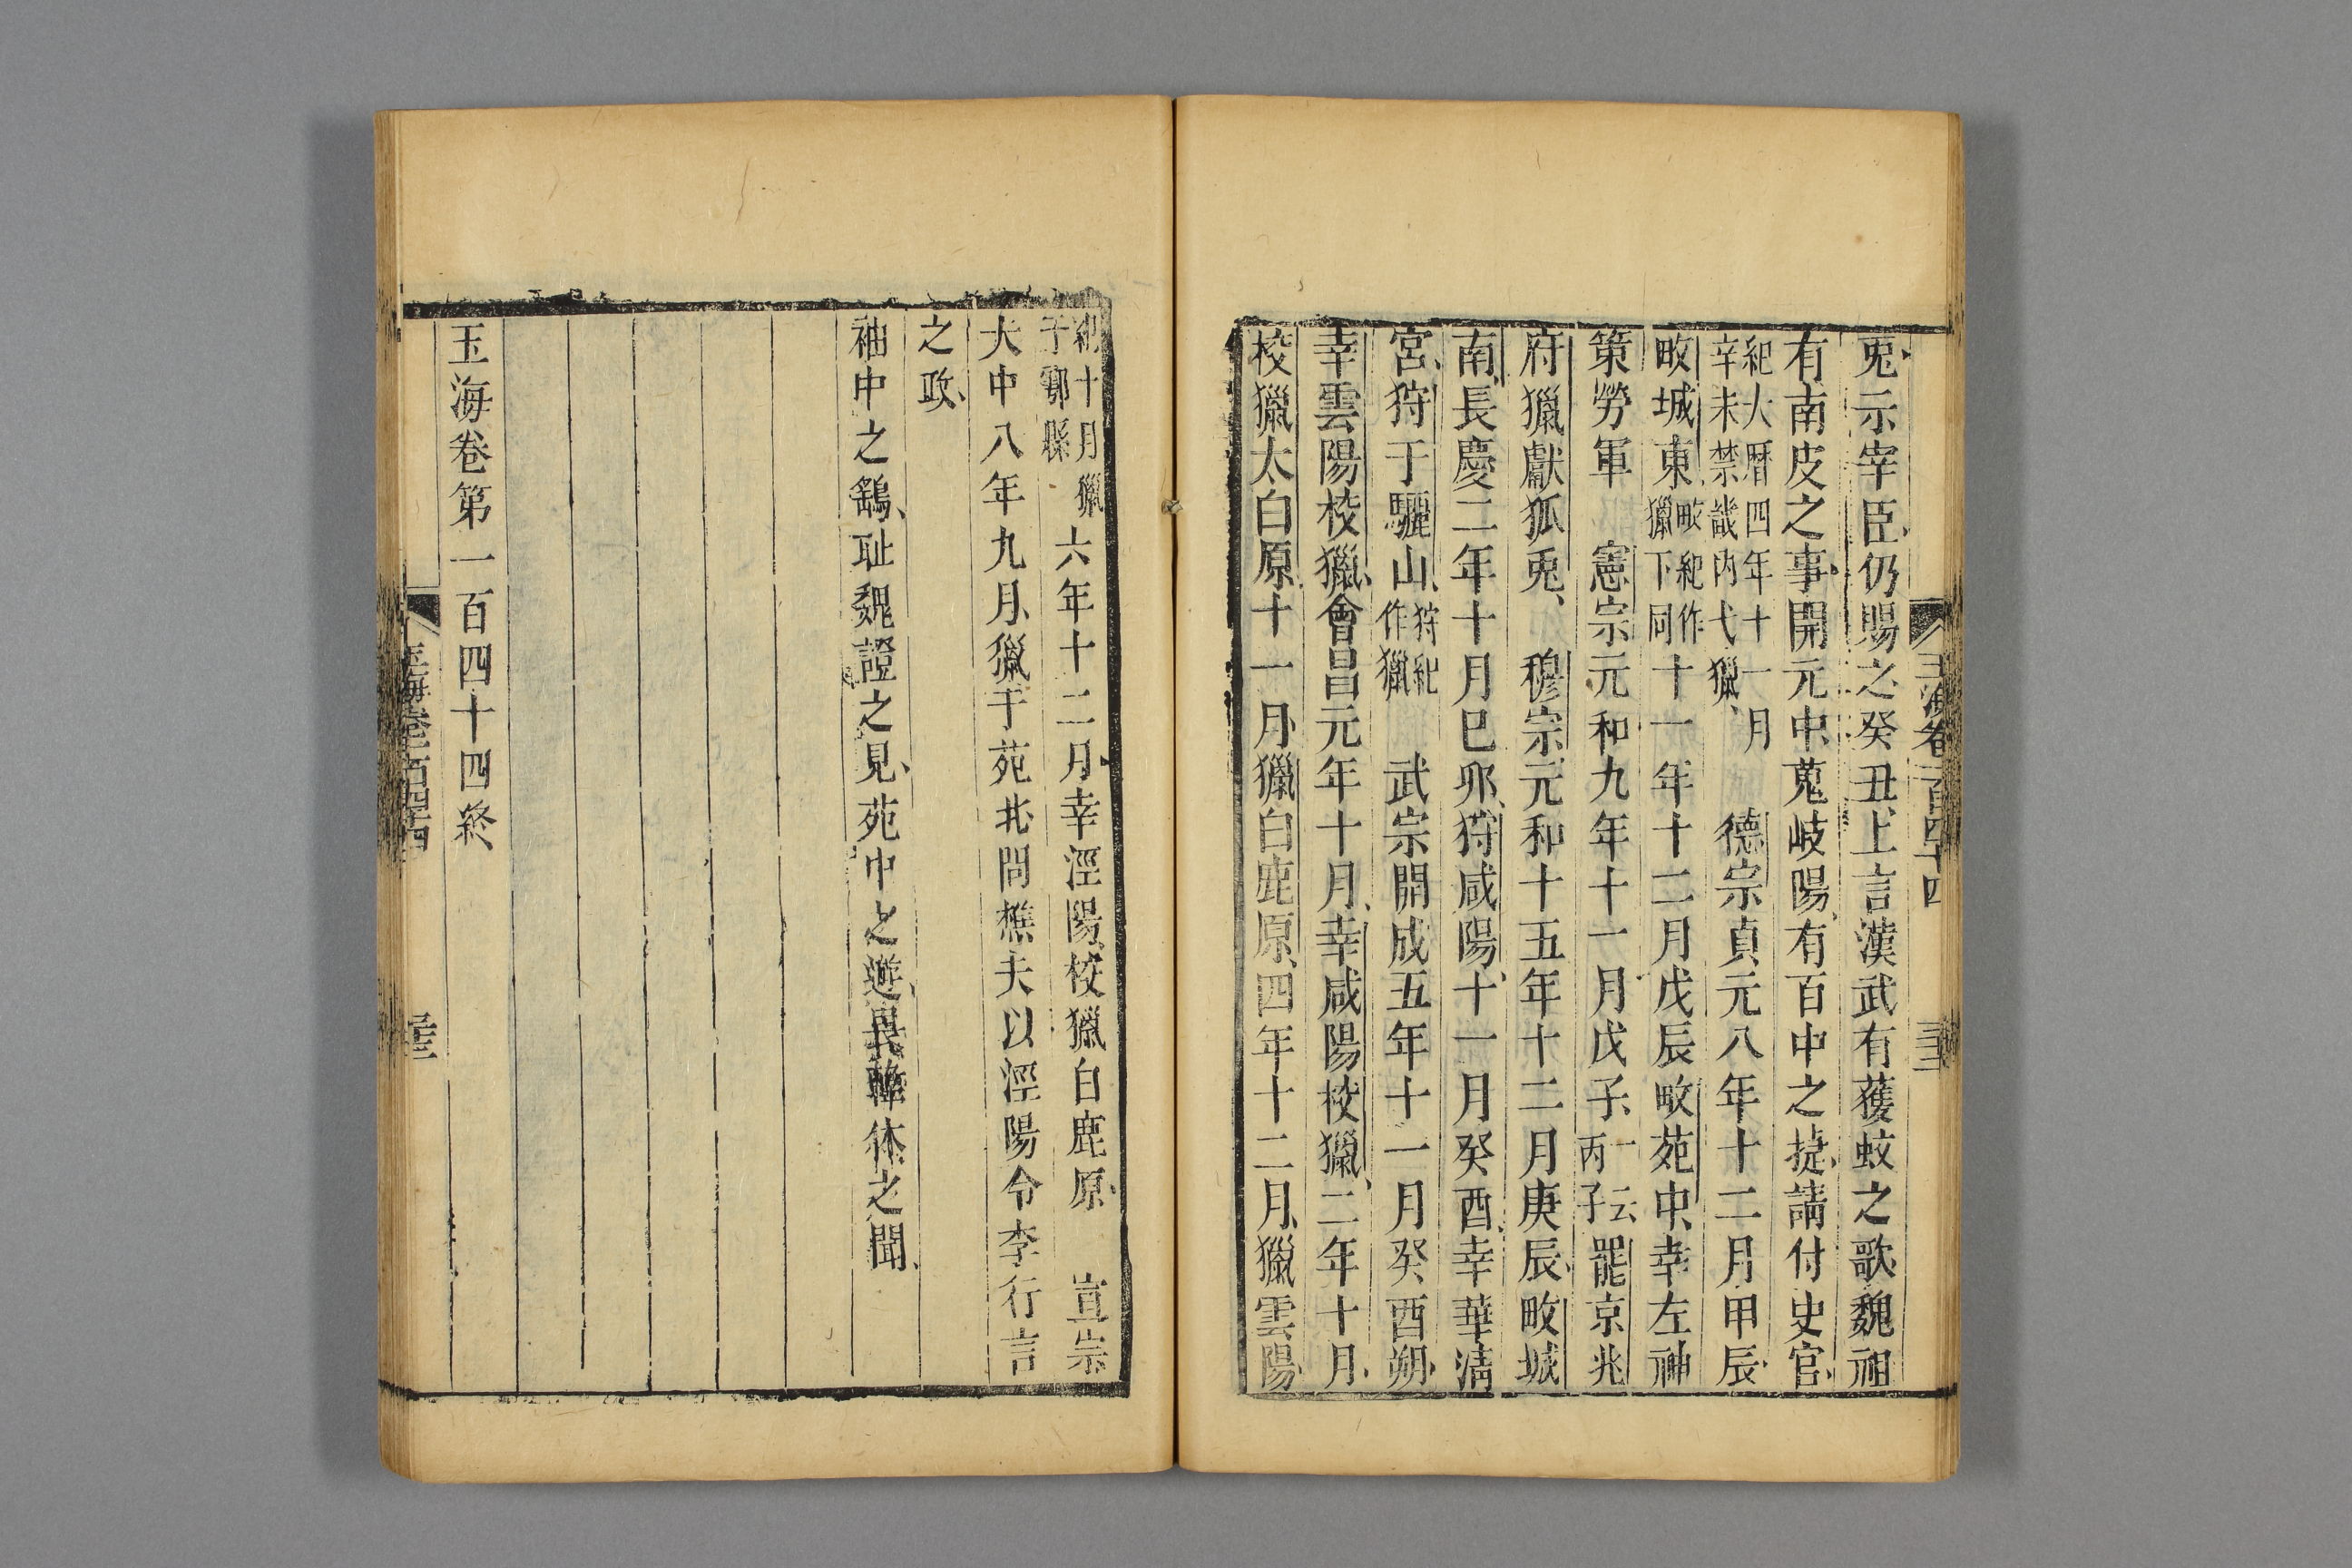 兎示宰臣仍賜之癸丑上言漢武有獲蛟之歌魏祖
有南皮之事開元中蒐岐陽有百中之捷請付史官
紀大曆四年十一月
辛未禁畿内弋獵
德宗貞元八年十二月甲辰
畋城東
畋紀作
獵下同
十一年十二月戊辰畋苑中幸左神
策勞軍 憲宗元和九年十一月戊子
一云
丙子
罷京兆
府獵獻狐兎 穆宗元和十五年十二月庚辰畋城
南長慶二年十月巳夘狩咸陽十一月癸酉幸華清
宮狩于驪山
狩紀
作獵
武宗開成五年十一月癸酉朔
幸雲陽校獵會昌元年十月幸咸陽校獵二年十月
校獵太白原十一月獵白鹿原四年十二月獵雲陽
玉海卷一百四十四
紀十月獵
于鄠縣
六年十二月幸涇陽校獵白鹿原 宣宗
大中八年九月獵于苑北問樵夫以涇陽令李行言
之政
袖中之鷂耻魏證之見苑中之遊畏韓休之聞
玉海卷第一百四十四終
玉海卷一百四十四